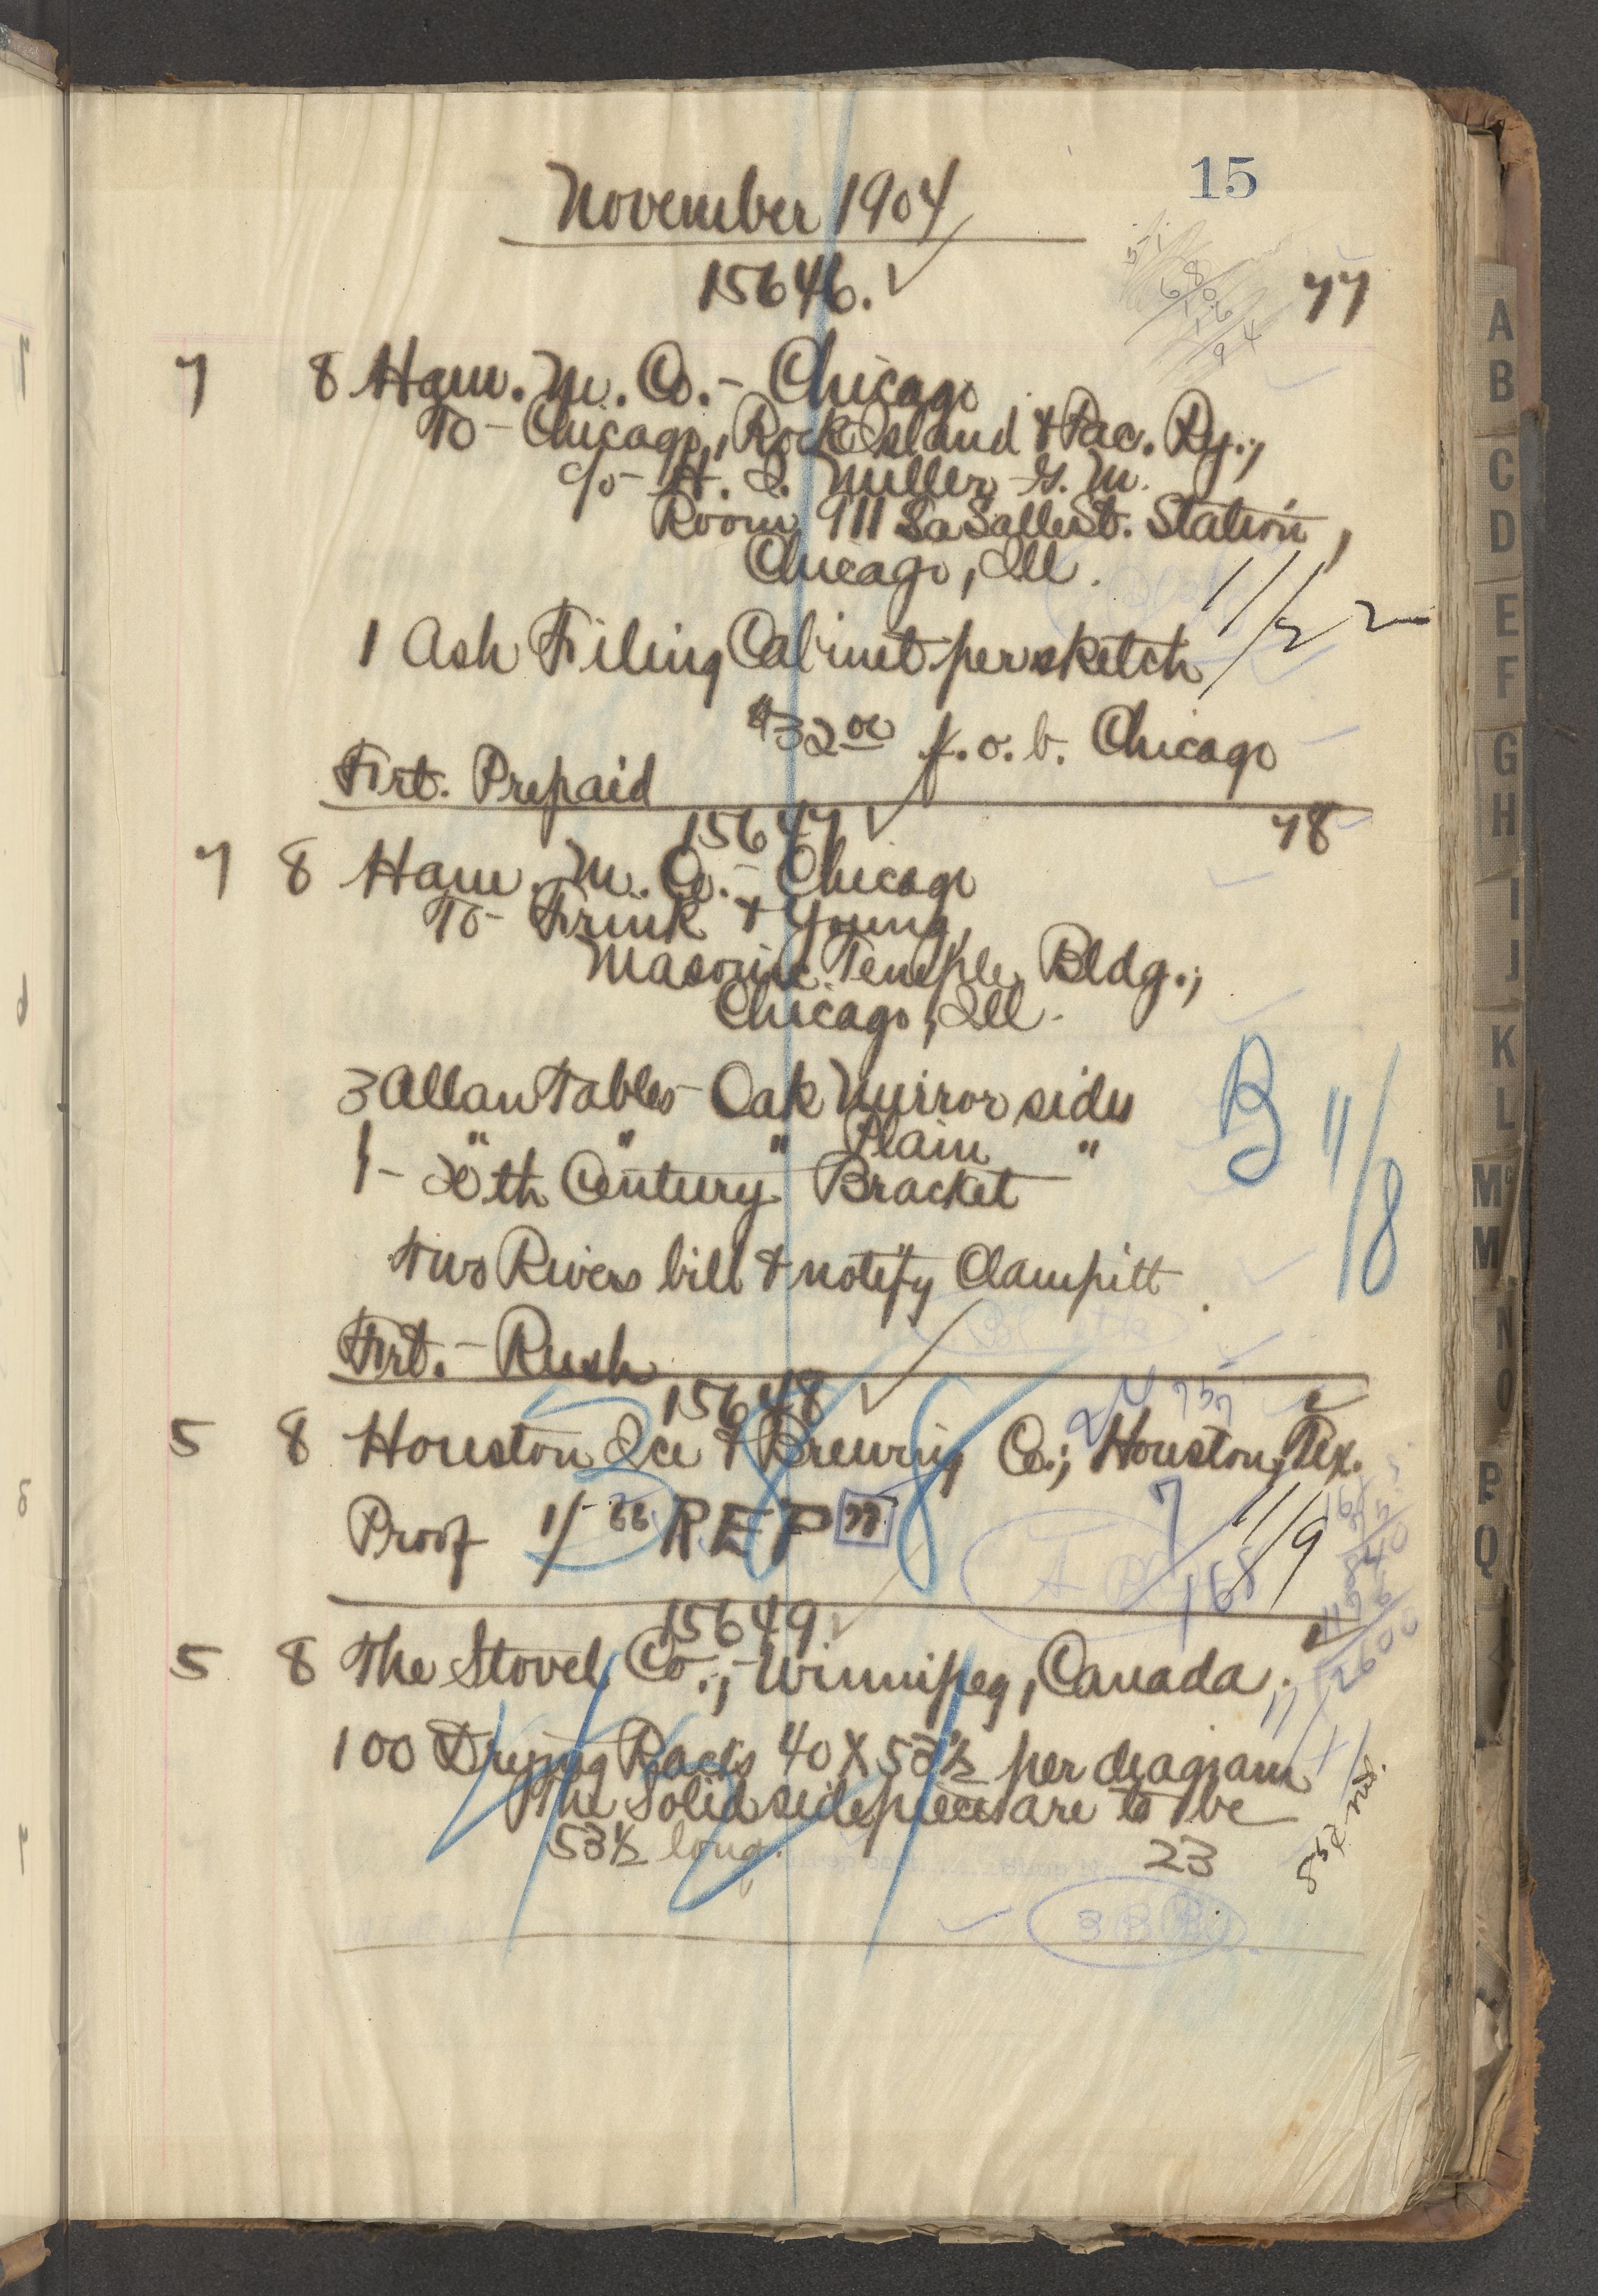 15
November 1904
15646.
77
7 8 Ham. M. Co. - Chicago
To - Chicago, Rock Island & Pac. Ry.,
c/o - H. I. Miller - G. M.
Room 911 LaSalle St. Station,
Chicago, Ill.
1 Ash Filing Cabinet per sketch
11/22
$32 00 f.o.b. Chicago
Frt. Prepaid
15647 78
7 8 Ham. M. Co. - Chicago
To - Frink & Young,
Masonic Temple Bldg.,
Chicago, Ill.
3 Allan Tables - Oak Mirror sides
1 - " " " Plain "
20th Century Bracket
B 11/8
Two Rivers bill & notify Clampitt.
Frt. - Rush
15648
5 8 Houston Ice & Brewing Co., Houston, Tex.
388
Proof 1/ "REP"
11/9
7/168
15649
5 8 The Stovel Co., - Winnipeg, Canada.
100 Drying Racks 40 X 53½ per diagram
The Solid side pieces are to be
53½ long.
23
A
B
C
D
E
F
G
H
I
J
K
L
Mc
M
N
O
P
Q